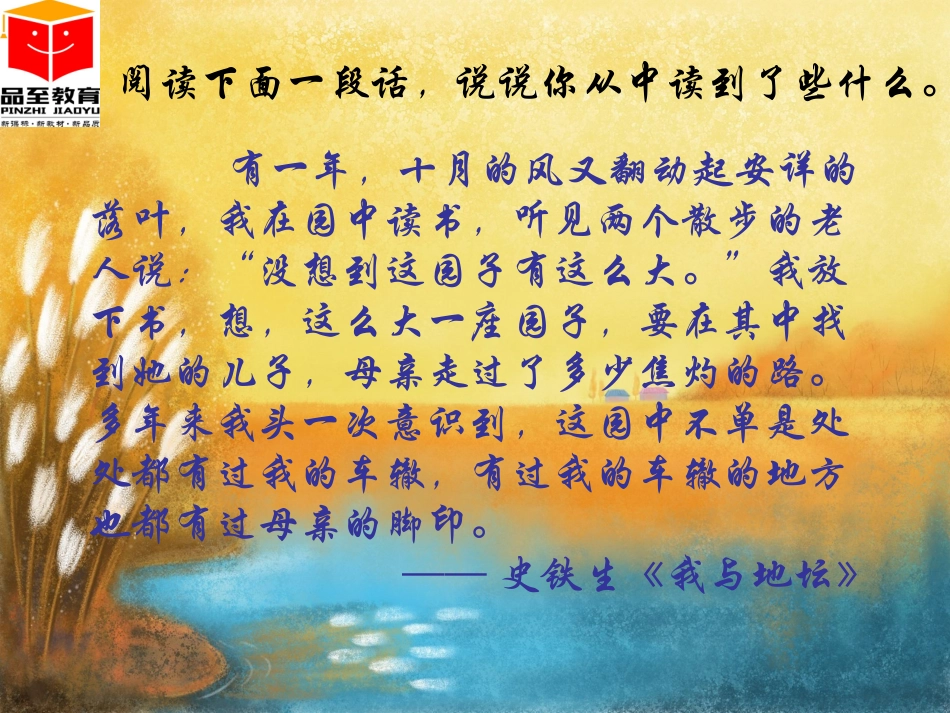 品至教育
PINZHI JIAOYU
新课标·新教材·新品质
阅读下面一段话，说说你从中读到了些什么。
有一年，十月的风又翻动起安详的
落叶，我在园中读书，听见两个散步的老
人说：“没想到这园子有这么大。”我放
下书，想，这么大一座园子，要在其中找
到她的儿子，母亲走过了多少焦灼的路。
多年来我头一次意识到，这园中不单是处
处都有过我的车辙，有过我的车辙的地方
也都有过母亲的脚印。
—— 史铁生《我与地坛》